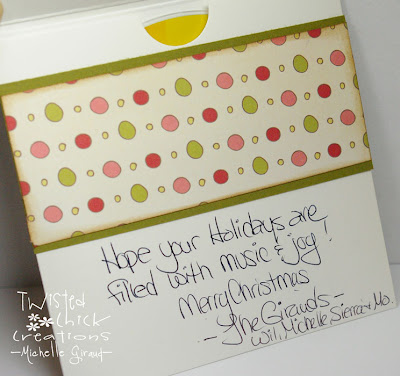 Hope your Holidays are
filled with music & joy!
Merry Christmas
- The Girauds -
Will, Michelle, Sierra & Mo.
Twisted
Chick
Creations
- Michelle Giraud